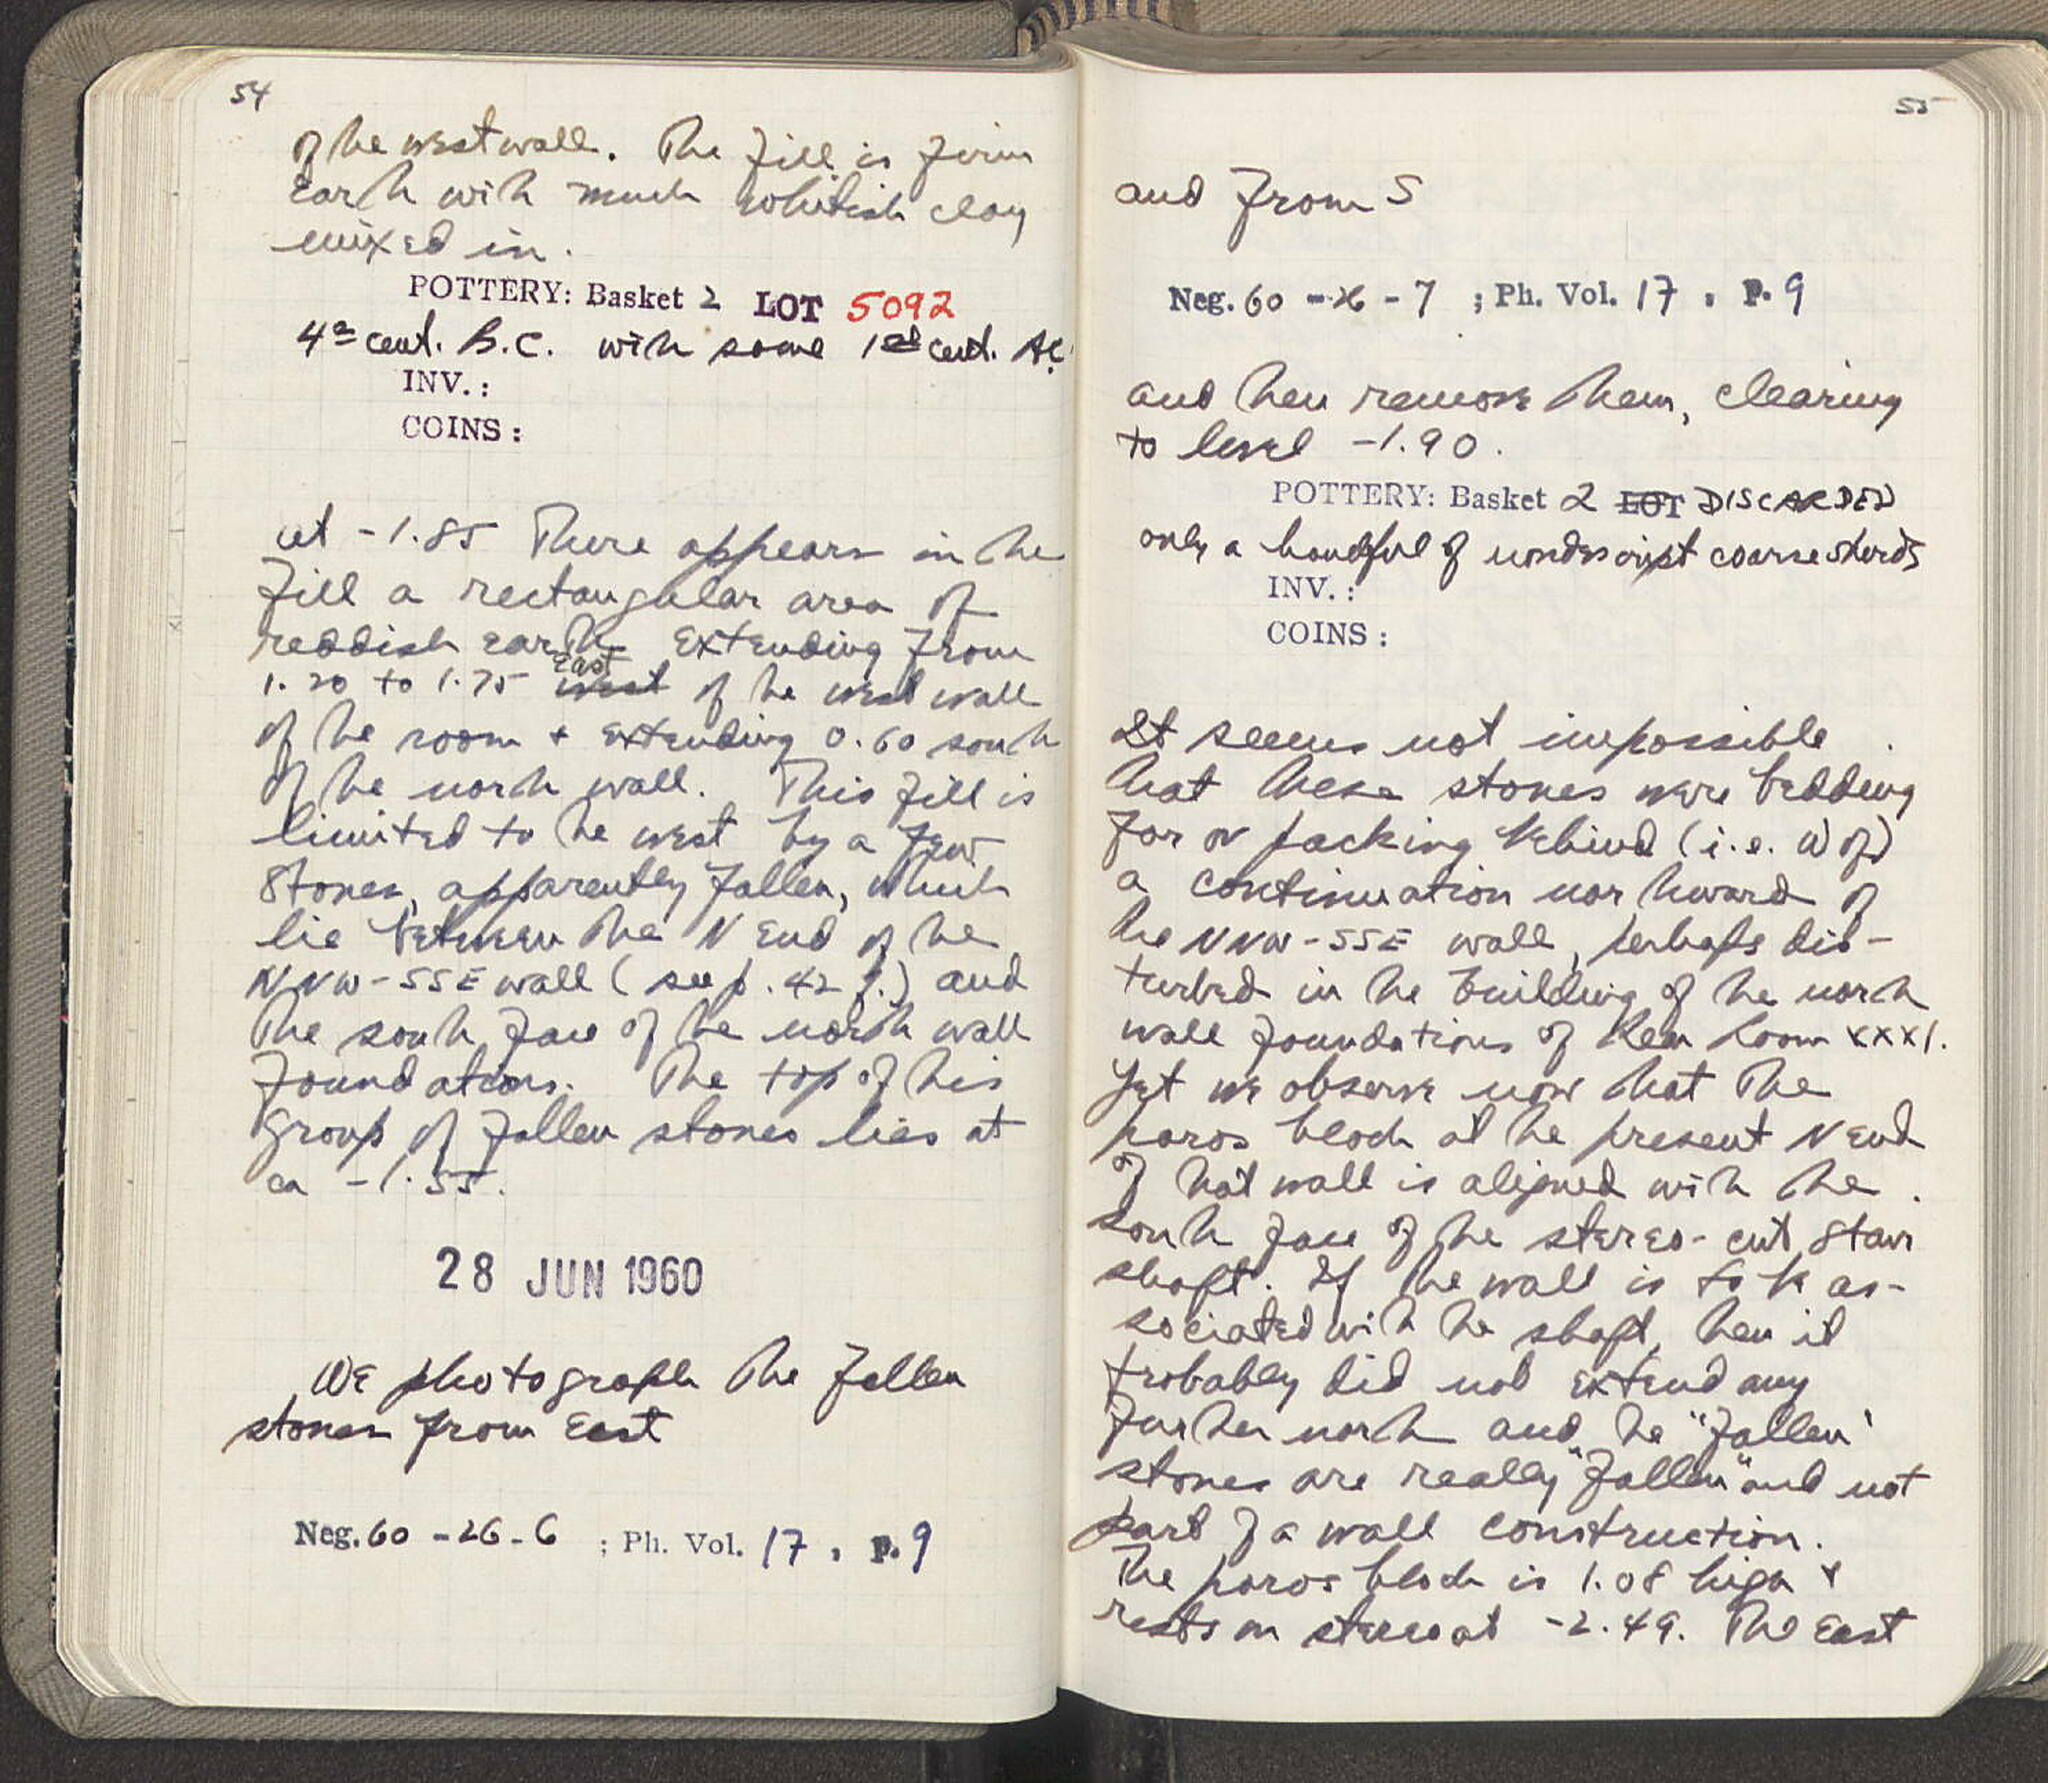 54
of the west wall. The fill is firm
earth with much whitish clay
mixed in.
POTTERY: Basket 2 LOT 5092
4th cent. B.C. with some 1st cent. AC.
INV.:
COINS:
at -1.85 There appears in the
fill a rectangular area of
reddish earth extending from
East
1.20 to 1.75 west of the west wall
of the room + extending 0.60 south
of the north wall. This fill is
limited to the west by a few
stones, apparently fallen, which
lie between the N end of the
NNW-SSE wall (see p. 42 f.) and
the south face of the north wall
foundations. The top of this
group of fallen stones lies at
ca -1.55.
28 JUN 1960
We photograph the fallen
stones from East
Neg. 60-26-6 ; Ph. Vol. 17, p. 9
55
and from S
Neg. 60-26-7 ; Ph. Vol. 17, p. 9
and then remove them, clearing
to level -1.90.
POTTERY: Basket 2 LOT DISCARDED
only a handful of nondescript coarse sherds
INV.:
COINS:
It seems not impossible
that these stones were bedding
for or packing behind (i.e. W of)
a continuation northward of
the NNW-SSE wall, perhaps dis-
turbed in the building of the north
wall foundations of Rear Room XXXI.
Yet we observe now that the
poros block at the present N end
of that wall is aligned with the
south face of the stereo-cut stair
shaft. If the wall is to be as-
sociated with the shaft, then it
probably did not extend any
further north and the "fallen"
stones are really "fallen" and not
part of a wall construction.
The poros block is 1.08 high +
rests on stereo at -2.49. The East